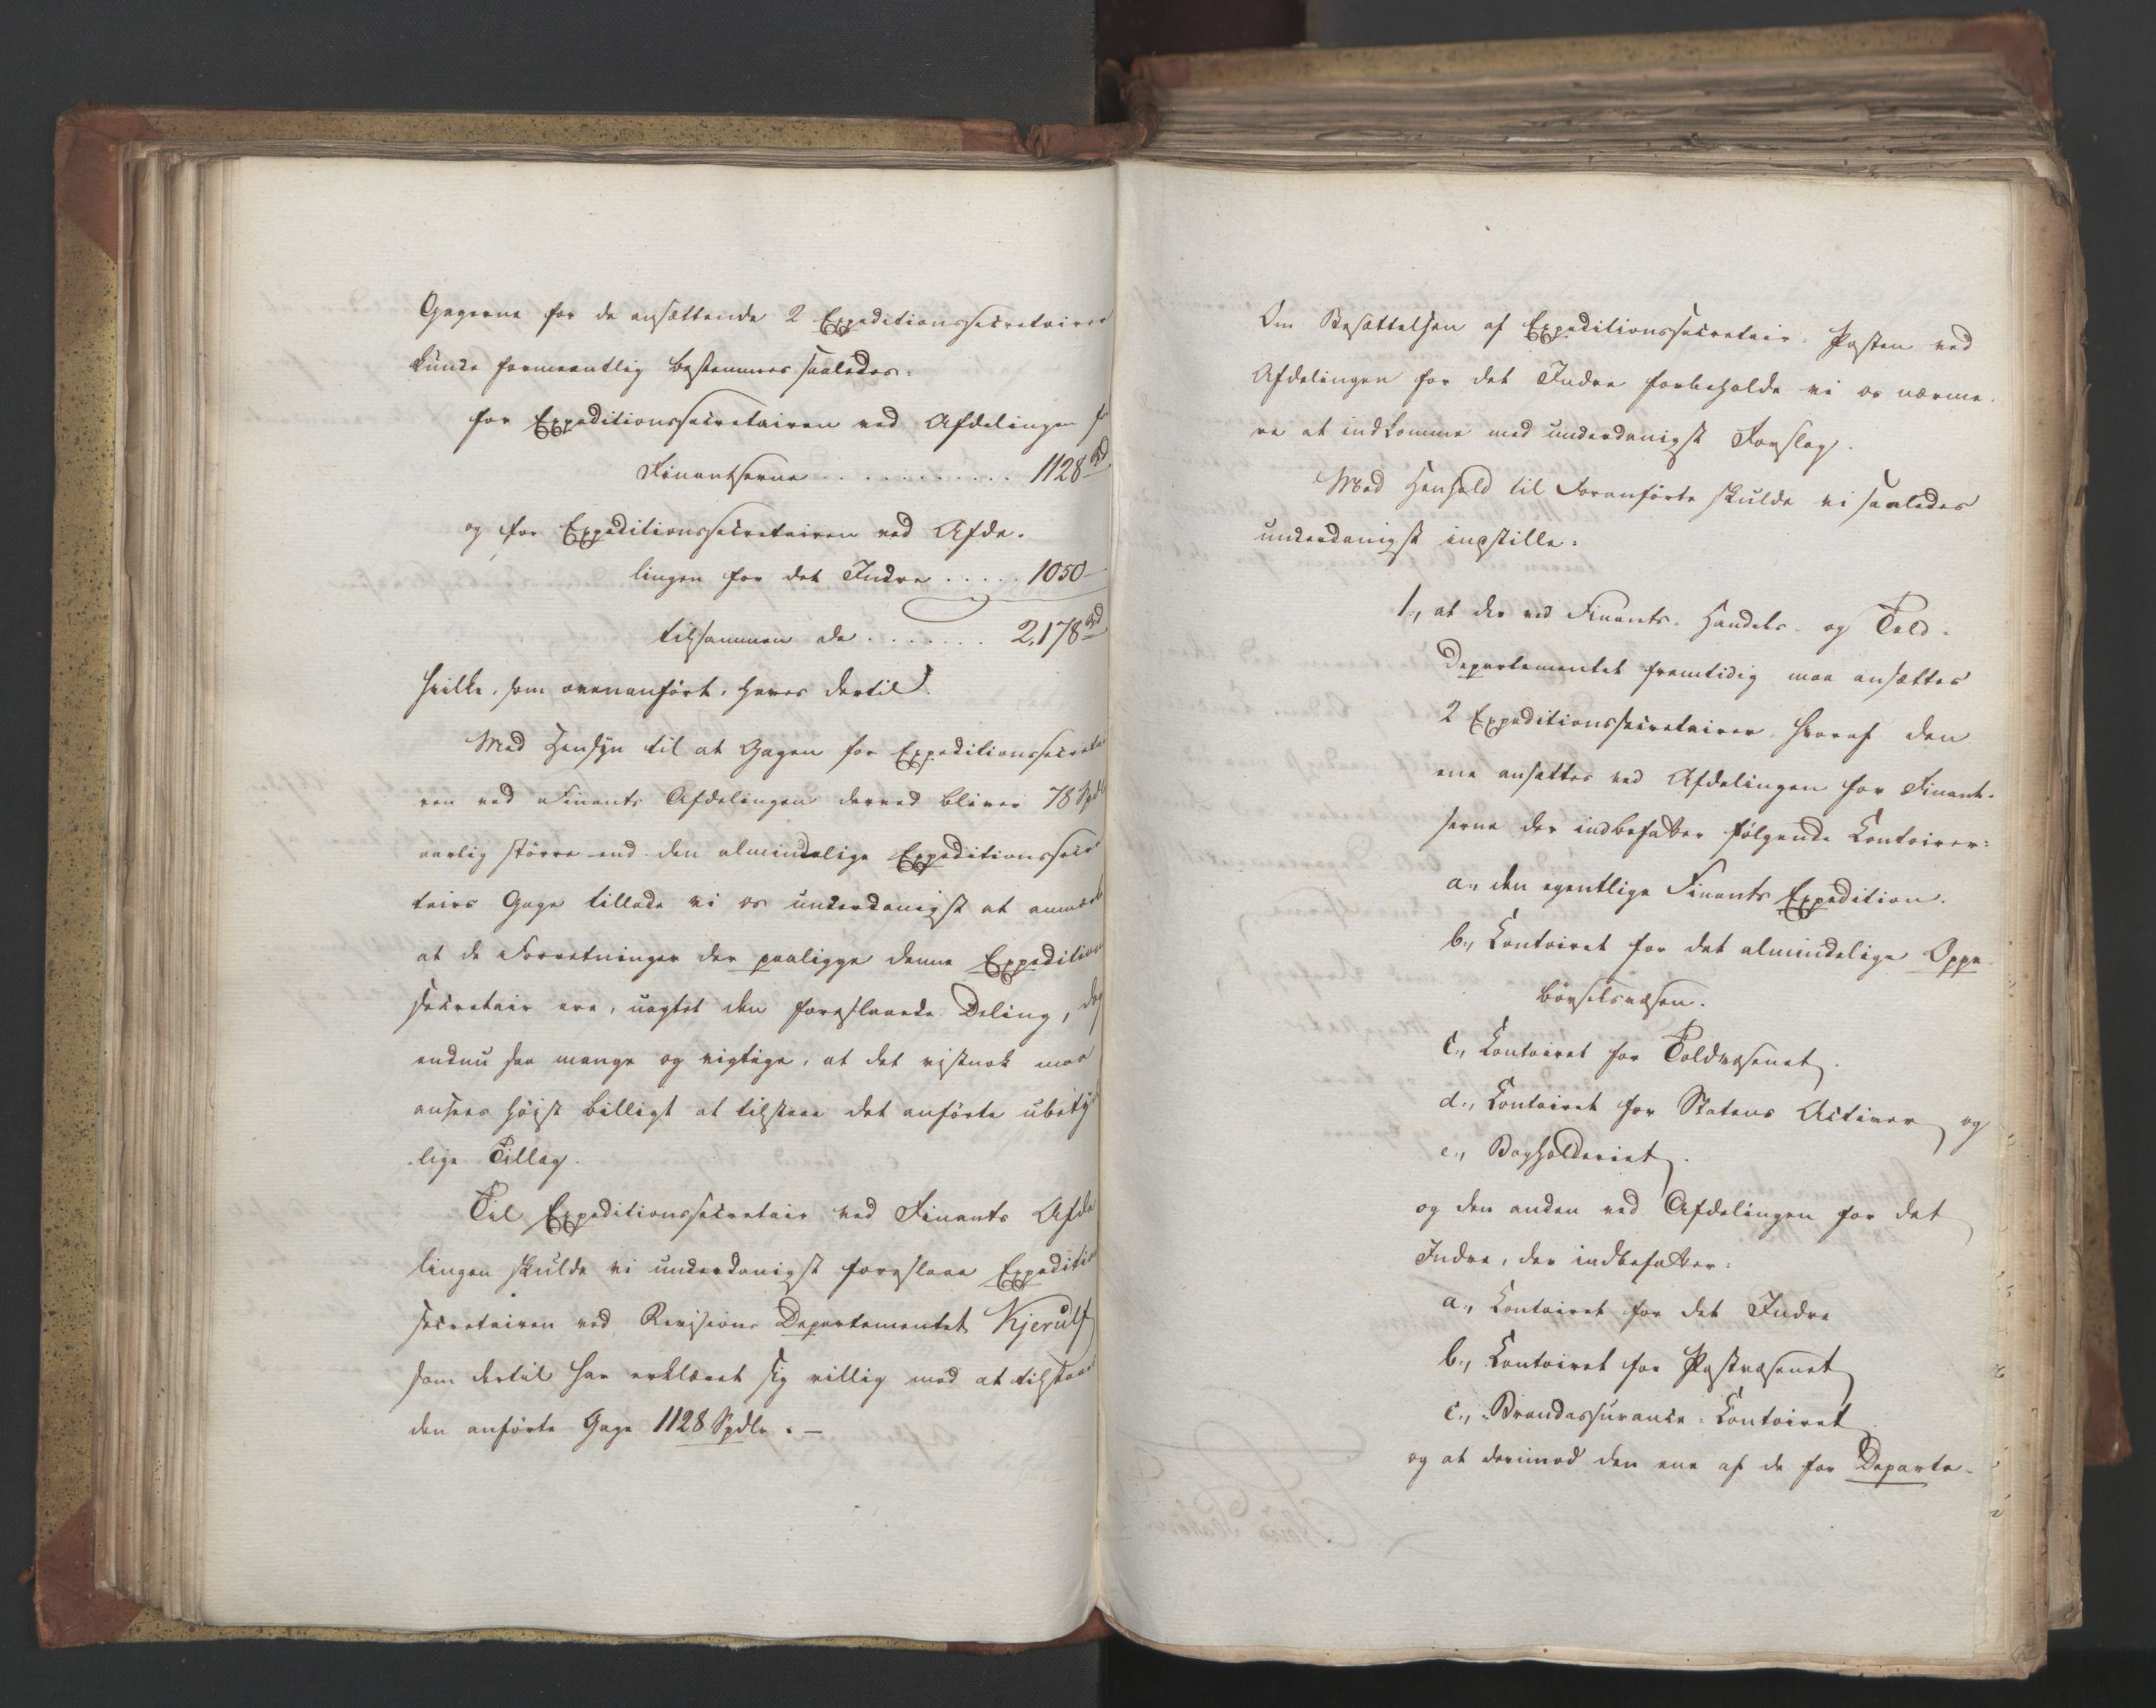 Gagerne for de ansættende 2 Expeditionssecretairer
kunde formeentlig bestemmes saaledes:
for Expeditionssecretairen ved Afdelingen for
Finantserne . . . . . . . . . . . 1128 Spd
og for Expeditionssecretairen ved Afde-
lingen for det Indre . . . . . 1050 —
tilsammen de . . . . . . . 2,178 Spd
hvilke, som ovenanført, haves dertil.
Med Hensyn til at Gagen for Expeditionssecretai
ren ved Finants Afdelingen derved bliver 78 Spdlr
aarlig større end den almindelige Expeditionssecre
tairs Gage tillade vi os underdanigst at anmærke
at de Forretninger der paaligge denne Expeditions
secretair ere, uagtet den foreslaaede Deling, dog
endnu saa mange og vigtige, at det vistnok maa
ansees høist billigt at tilstaae det anførte ubetyd
lige Tillæg.
Til Expeditionssecretair ved Finants Afde
lingen skulde vi underdanigst foreslaae Expeditions
secretairen ved Revisions Departementet Kjerulf
som dertil har erklæret sig villig med at tilstaaes
den anførte Gage 1128 Spdlr. —
Om Besættelsen af Expeditionssecretair-Posten ved
Afdelingen for det Indre forbeholde vi os nærme-
re at indkomme med underdanigst Forslag.
Med Henhold til Foranførte skulde vi saaledes
underdanigst indstille:
1., at der ved Finants- Handels- og Told-
Departementet fremtidig maa ansættes
2 Expeditionssecretairer, hvoraf den
ene ansættes ved Afdelingen for Finant-
serne der indbefatter følgende Contoirer:
a., den egentlige Finants Expedition.
b., Contoiret for det almindelige Oppe-
børselsvæsen.
c., Contoiret for Toldvæsenet.
d., Contoiret for Statens Activer og
e., Bogholderiet.
og den anden ved Afdelingen for det
Indre, der indbefatter:
a., Contoiret for det Indre
b., Contoiret for Postvæsenet
c., Brandassurance-Contoiret
og at derimod den ene af de for Departe-